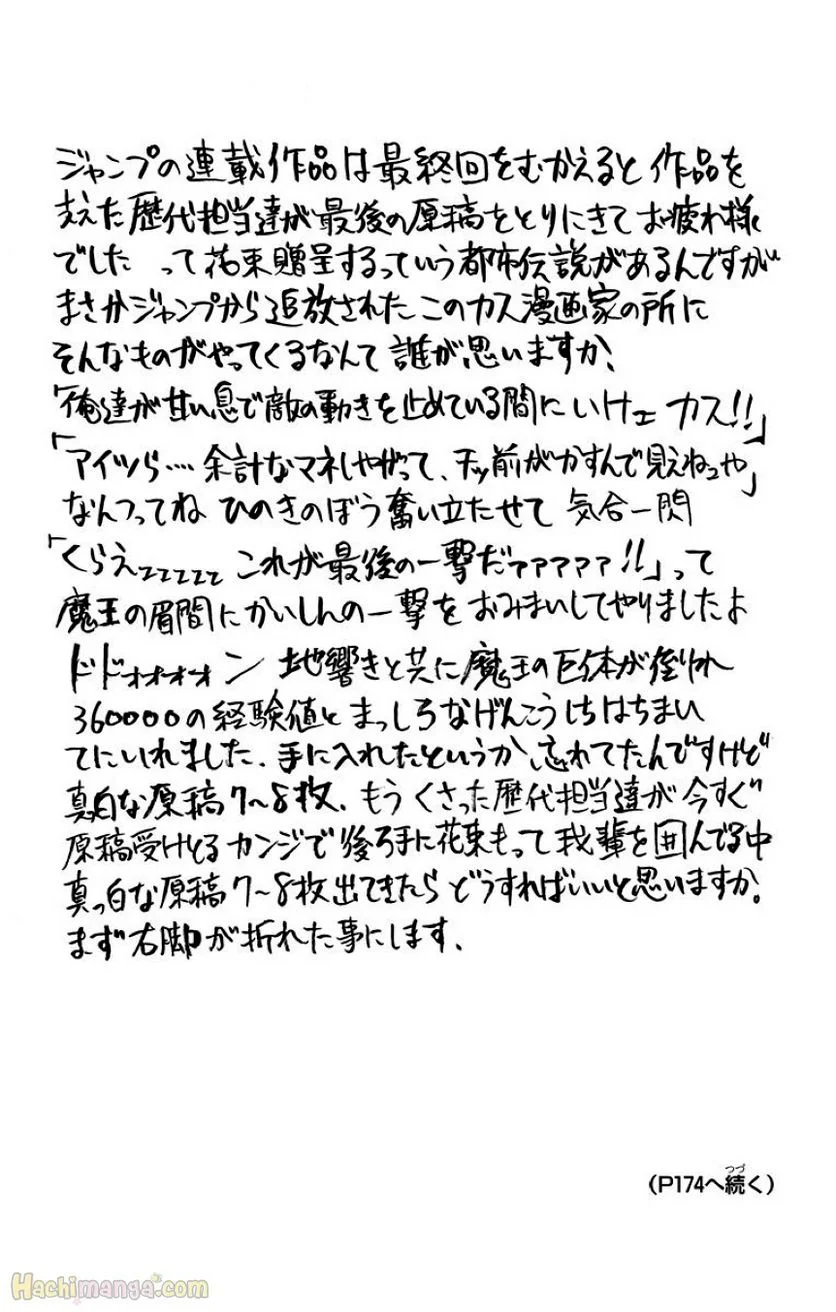 ジャンプの連載作品は最終回をむかえると作品を
支えた歴代担当達が最後の原稿をとりにきてお疲れ様
でした って花束贈呈するっていう都市伝説があるんですが
まさかジャンプから追放されたこのカス漫画家の所に
そんなものがやってくるなんて誰が思いますか。
「俺達が甘い息で敵の動きを止めている間にいけェ カス!!」
「アイツら…. 余計なマネしやがって、チッ前がかすんで見えねェや」
なんつってね ひのきのぼう奮い立たせて 気合一閃
「くらえェェェェェ これが最後の一撃だァァァァァ!!」って
魔王の眉間にかいしんの一撃をおみまいしてやりましたよ
ドドォォォォォン 地響きと共に魔王の巨体が倒れ
360000の経験値とまっしろなげんこうしちはちまい
てにいれました。手に入れたというか、忘れてたんですけど
真白な原稿7〜8枚、もうくさった歴代担当達が今すぐ
原稿受けとるカンジで後ろ手に花束もって我輩を囲んでる中
真っ白な原稿7〜8枚出てきたらどうすればいいと思いますか。
まず右脚が折れた事にします。
(P174へ続く)
つづ
Hachimanga.com